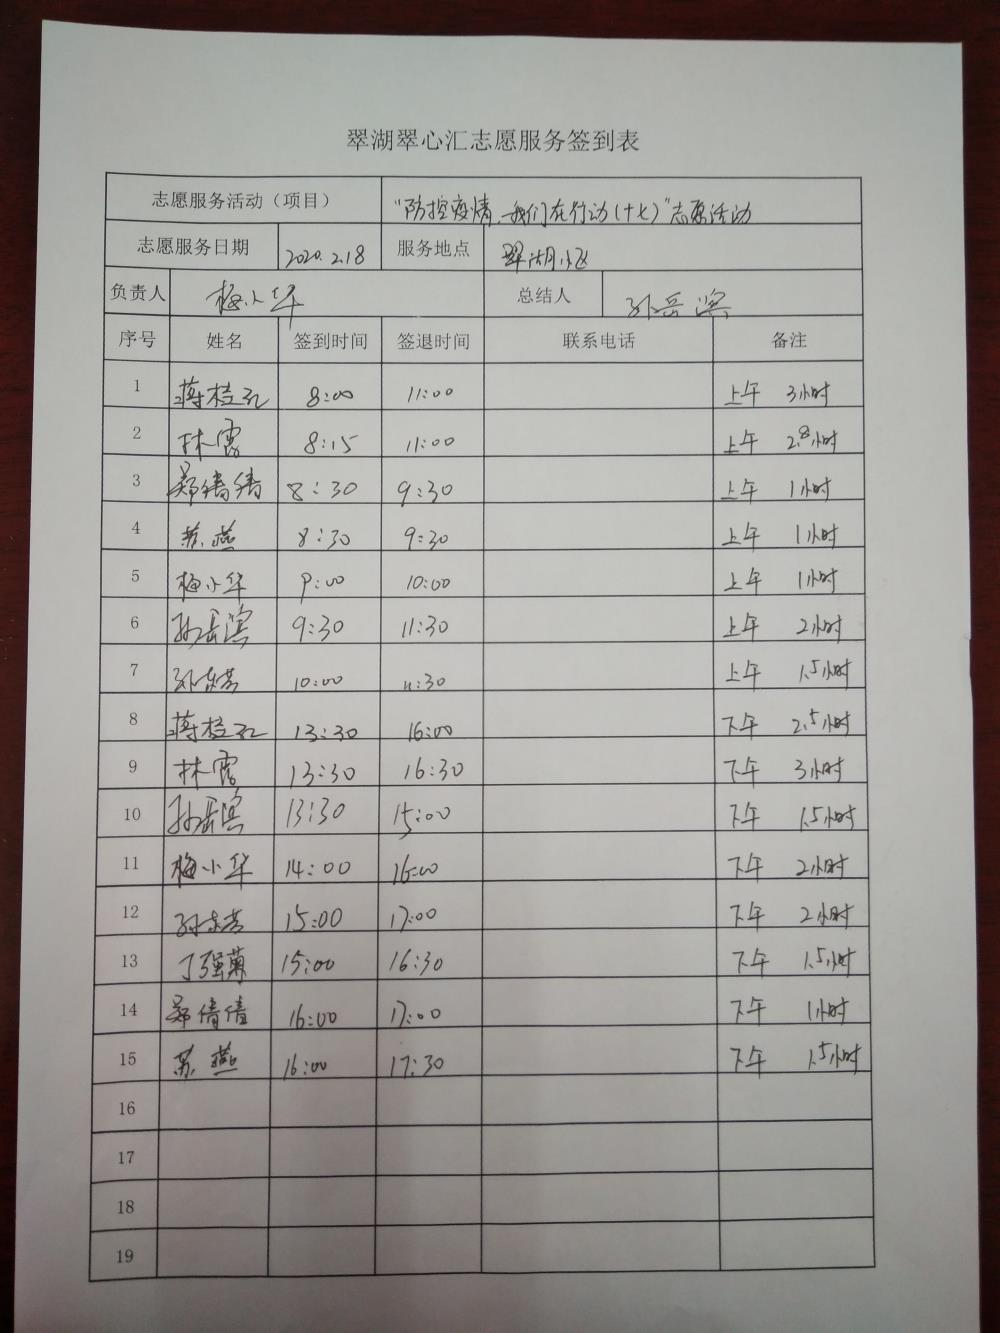 翠湖翠心汇志愿服务签到表
志愿服务活动（项目） “防控疫情、我们在行动(十七)”志愿活动
志愿服务日期 2020.2.18 服务地点 翠湖小区
负责人 梅小华 总结人 孙岳滨
序号 姓名 签到时间 签退时间 联系电话 备注
1 蒋桂孔 8:00 11:00 上午 3小时
2 林露 8:15 11:00 上午 2.8小时
3 郑倩倩 8:30 9:30 上午 1小时
4 苏燕 8:30 9:30 上午 1小时
5 梅小华 9:00 10:00 上午 1小时
6 孙岳滨 9:30 11:30 上午 2小时
7 孙东芳 10:00 11:30 上午 1.5小时
8 蒋桂孔 13:30 16:00 下午 2.5小时
9 林露 13:30 16:30 下午 3小时
10 孙岳滨 13:30 15:00 下午 1.5小时
11 梅小华 14:00 16:00 下午 2小时
12 孙东芳 15:00 17:00 下午 2小时
13 丁强 15:00 16:30 下午 1.5小时
14 郑倩倩 16:00 17:00 下午 1小时
15 苏燕 16:00 17:30 下午 1.5小时
16
17
18
19